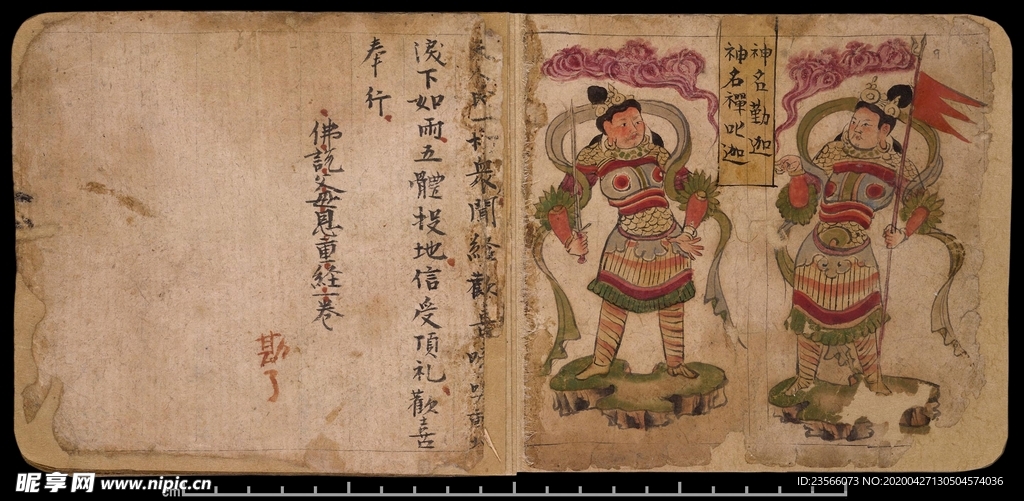 神名勤迦
神名禪叱迦
一切衆聞經歡喜
淚下如雨五體投地信受頂礼歡喜
奉行
佛說父母恩重經一卷
勘了
昵享网 www.nipic.cn
ID:23566073 NO:20200427130504574036
cm